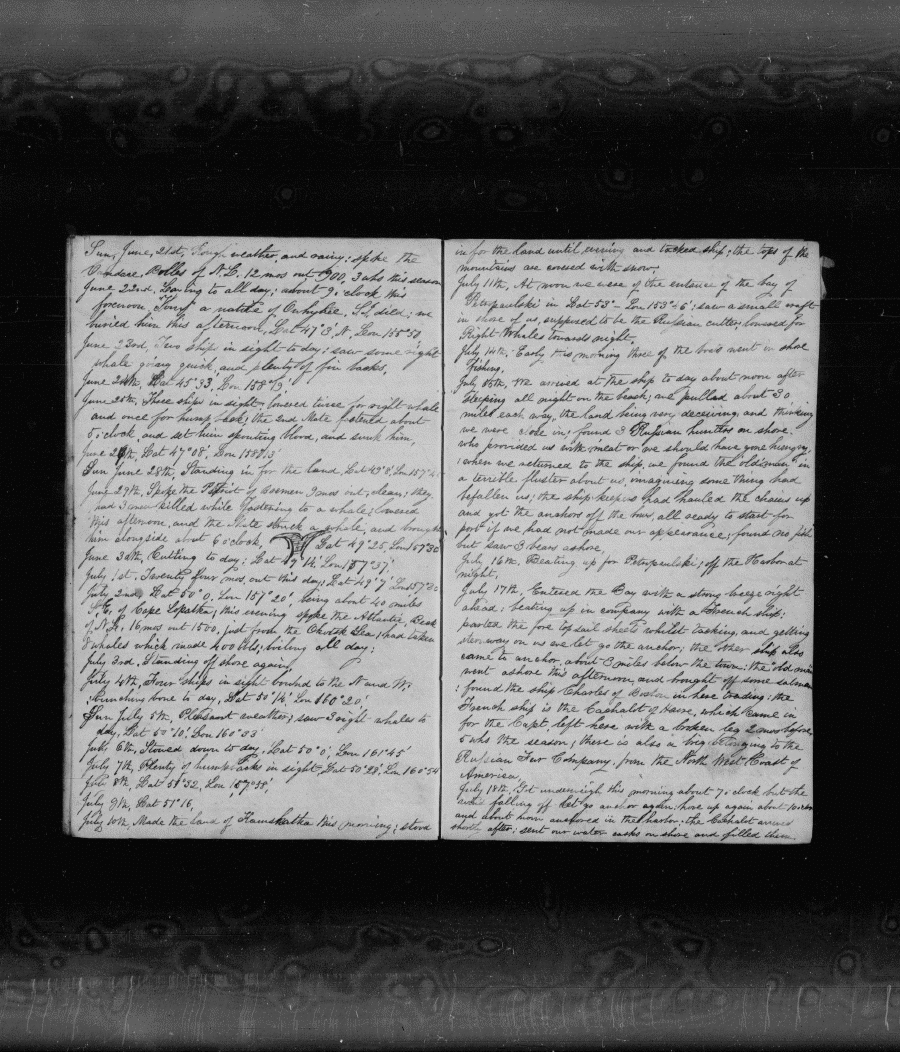 Sun, June, 21st, Rough weather, and rainy; spoke the
Candace, Rolles of N.L. 12 mos out 900, 3 whs this season
June 22nd, Laying to all day; about 9 o'clock this
forenoon, Tony a native of Owhyhee, S.I. died; we
buried him this afternoon, Lat 47°3' N. Lon 155°50'
June 23rd, Two ship in sight to day; saw some right
whale going quick, and plenty of fin backs,
June 24th, Lat 45°33, Lon 158°13'
June 25th, Three ships in sight, lowered twice for right whale
and once for hump back; the 2nd Mate fastened about
5 o'clock, and set him spouting blood, and sunk him,
June 27th, Lat 47°08', Lon 158°13'
Sun June 28th, Standing in for the land, Lat 49°8', Lon 157°
June 29th, Spoke the Patriot of Bremen 9 mos out; clean; they
had 3 men killed while fastening to a whale; lowered
this afternoon, and the Mate struck a whale, and brought
him alongside about 6 o'clock, Lat 49°25, Lon 157°30'
June 30th, Cutting to day; Lat 49°14', Lon 157°37',
July 1st, Twenty four mos, out this day; Lat 49°7' Lon 157°30
July 2nd, Lat 50°0, Lon 157°20', being about 40 miles
S.E. of Cape Lopatka; this evening spoke the Atlantic, Beck
of N.L. 16 mos out 1500, just from the Okotsk Sea; had taken
8 whales which made 400 bbls; boiling all day;
July 3rd, Standing off shore again,
July 4th, Four ships in sight bound to the N and W;
bunching bone to day, Lat 50°14', Lon 160°20,
Sun July 5th, Pleasant weather; saw 3 right whales to
day, Lat 50°10', Lon 160°33'
July 6th, Stowed down to day, Lat 50°0', Lon 161°45'
July 7th, Plenty of humpbacks in sight, Lat 50°28', Lon 160°54
July 8th, Lat 51°32, Lon, 157°35',
July 9th, Lat 51°16,
July 10th, Made the land of Kamskatka this morning; stood
in for the land until evening and tacked ship; the tops of the
mountains are covered with snow;
July 11th, At noon we were of the entance of the bay of
Petrpaulski in Lat 53° - Lon 153°46'; saw a small craft
in shore of us, supposed to be the Russian cutter; lowered for
Right Whales towards night,
July 14th, Early this morning three of the boats went on shore
fishing,
July 15th, We arrived at the ship to day about noon after
sleeping all night on the beach; we pulled about 30
miles each way, the land being very deceiving, and thinking
we were close in; found 3 Russian hunters on shore
who provided us with meat or we should have gone hungry;
when we returned to the ship, we found the "old man" in
a terrible fluster about us, imagining some thing had
befallen us; the ship keepers had hauled the chains up
and got the anchors off the bows, all ready to start for
port if we had not made our appearance; found no fish
but saw 3 bears ashore,
July 16th, Beating up for Petrpaulski; off the Harbor at
night,
July 17th, Entered the Bay with a strong breeze right
ahead; beating up in company with a French ship;
parted the fore topsail sheets whilst tacking, and getting
stern way on us we let go the anchor; the other ship also
came to anchor, about 3 miles below the town; the old man
went ashore this afternoon, and bought off some salmon
; found the ship Charles of Boston in here trading; the
French ship is the Cachalot of Havre, which came in
for the Capt. left here with a broken leg 2 mos before
5 whs the season; there is also a brig belonging to the
Russian Fur Company, from the North West Coast of
America,
July 18th, Got underweigh this morning about 7 o'clock but the
wind falling off let go anchor again; hove up again about 10 o'clock
and about noon anchored in the harbor; the Cachalot arrived
shortly after; sent our water casks on shore and filled them